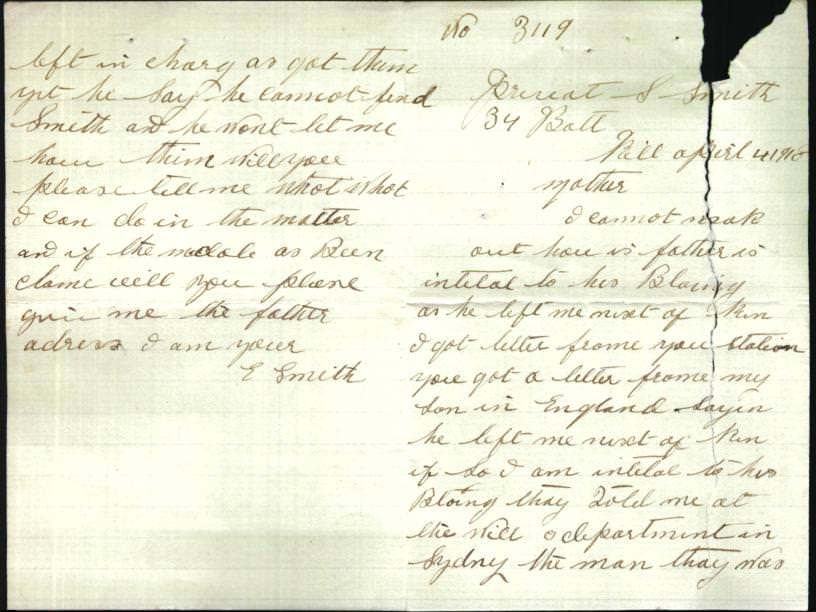 No 3119
Privat S Smith
34 Batt
april 4 1918
mother
I cannot mak
out how is father is
intital to his Blaing
as he left me nixt of Kin
I got letter frome you station
you got a letter frome my
son in England sayin
he left me nixt of Kin
if so I am intital to his
Blaing thay Told me at
the will department in
Sydney the man thay was
left in charg as got them
yet he say he cannot find
Smith and he wont let me
have them will you
please tell me whot
I can do in the matter
and if the medale as Been
clame will you please
give me the father
adress I am your
E Smith